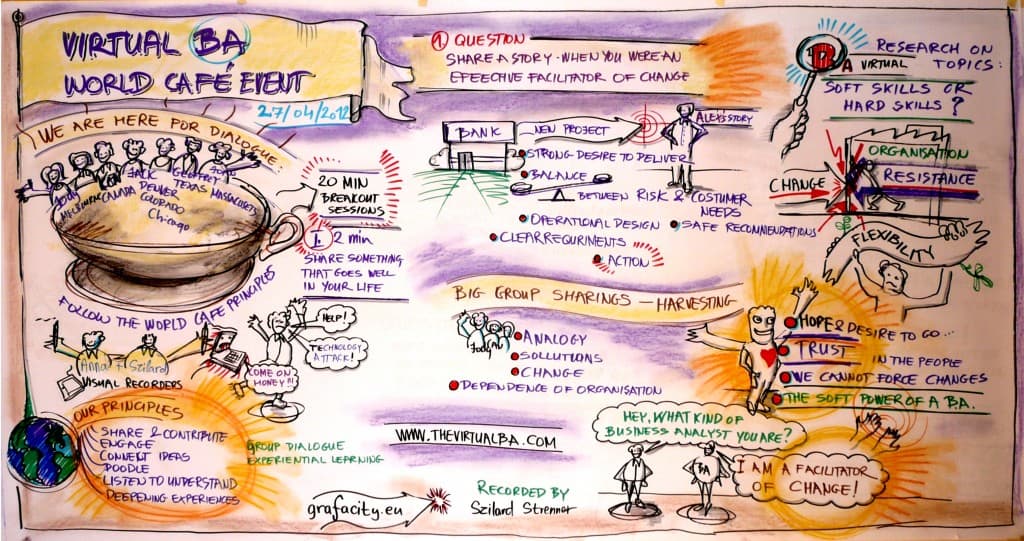 VIRTUAL BA
WORLD CAFÉ EVENT
27/04/2012
WE ARE HERE FOR DIALOGUE
JACK
GEOFFREY
MELBOURNE
CANADA
DENVER
COLORADO
TEXAS
Chicago
FOLLOW THE WORLD CAFE PRINCIPLES
20 MIN
BREAKOUT
SESSIONS
1. 2 min
SHARE SOMETHING
THAT GOES WELL
IN YOUR LIFE
HELP!
TECHNOLOGY
ATTACK!
COME ON
HONEY!!!
Anna + Szilard
VISUAL RECORDERS
OUR PRINCIPLES
SHARE & CONTRIBUTE
ENGAGE
CONNECT IDEAS
DOODLE
LISTEN TO UNDERSTAND
DEEPENING EXPERIENCES
GROUP DIALOGUE
EXPERIENTIAL LEARNING
1 QUESTION
SHARE A STORY - WHEN YOU WERE AN
EFFEECTIVE FACILITATOR OF CHANGE
BANK
NEW PROJECT
ALEX'S STORY
STRONG DESIRE TO DELIVER
BALANCE
BETWEEN RISK & COSTUMER
NEEDS
OPERATIONAL DESIGN
SAFE RECOMMENDATIONS
CLEAR REQURIMENTS
ACTION
BIG GROUP SHARINGS - HARVESTING
ANALOGY
SOLLUTIONS
CHANGE
DEPENDENCE OF ORGANISATION
HOPE & DESIRE TO GO...
TRUST IN THE PEOPLE
WE CANNOT FORCE CHANGES
THE SOFT POWER OF A B.A.
RESEARCH ON
A VIRTUAL TOPICS:
SOFT SKILLS OR
HARD SKILLS?
ORGANISATION
CHANGE
RESISTANCE
FLEXIBILITY
WWW.THEVIRTUALBA.COM
HEY, WHAT KIND OF
BUSINESS ANALYST YOU ARE?
BA
I AM A FACILITATOR
OF CHANGE!
grafacity.eu
RECORDED BY
Szilard Strenner